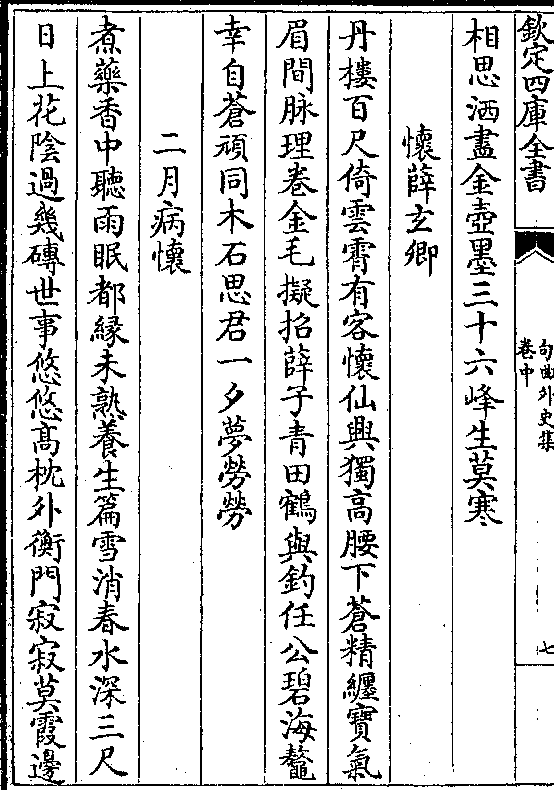 欽定四庫全書
句曲外史集
卷中
七
相思洒盡金壺墨三十六峰生莫寒
懷薛玄卿
丹樓百尺倚雲霄有客懷仙興獨高腰下蒼精纏寶氣
眉間脉理卷金毛擬招薛子青田鶴與釣任公碧海鼇
幸自蒼頑同木石思君一夕夢勞勞
二月病懷
煮藥香中聽雨眠都緣未熟養生篇雪消春水深三尺
日上花陰過幾磚世事悠悠髙枕外衡門寂寂莫霞邊